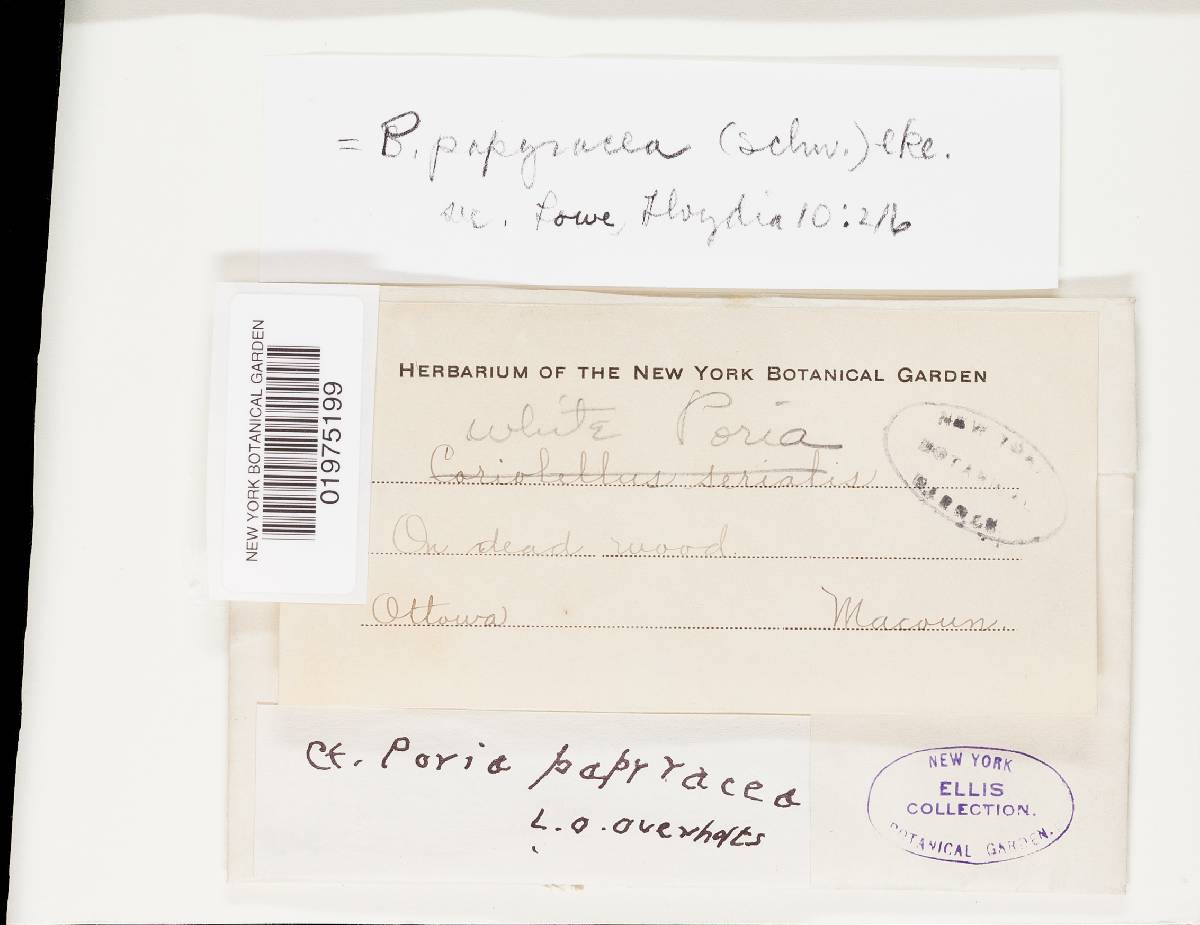 = P. papyracea (Schw.) Cke.
sec. Lowe, Lloydia 10:216
NEW YORK BOTANICAL GARDEN
01975199
HERBARIUM OF THE NEW YORK BOTANICAL GARDEN
white Poria
Coriolellus serialis
NEW YORK
BOTANICAL
GARDEN
On dead wood.
Ottowa Macoun.
Cf. Poria papyracea
L.O. Overholts
NEW YORK
ELLIS
COLLECTION.
BOTANICAL GARDEN.